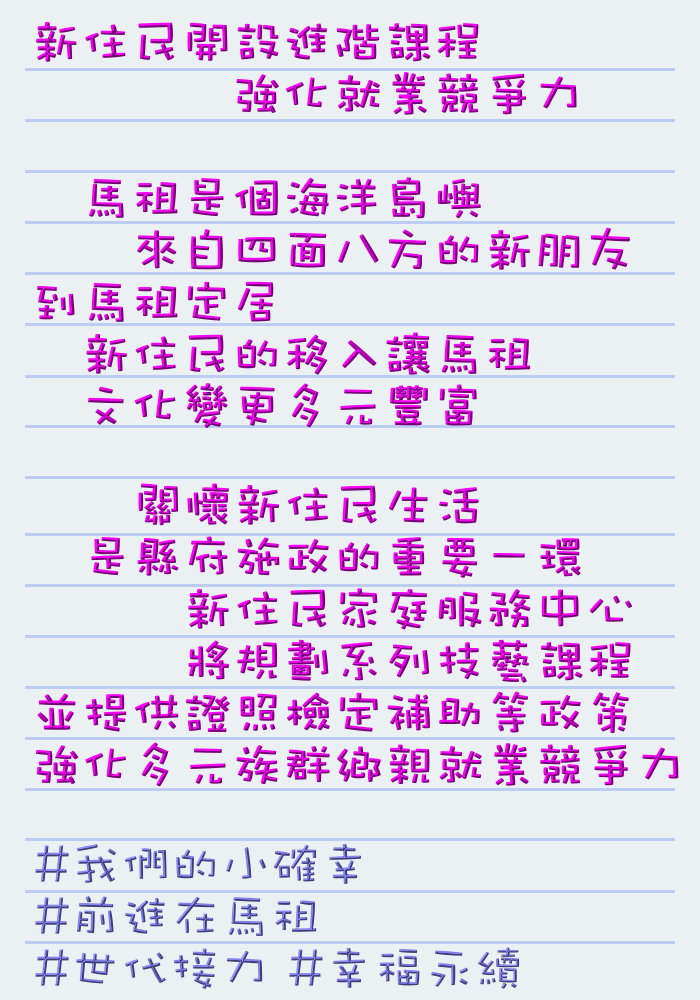 新住民開設進階課程
強化就業競爭力
馬祖是個海洋島嶼
來自四面八方的新朋友
到馬祖定居
新住民的移入讓馬祖
文化變更多元豐富
關懷新住民生活
是縣府施政的重要一環
新住民家庭服務中心
將規劃系列技藝課程
並提供證照檢定補助等政策
強化多元族群鄉親就業競爭力
#我們的小確幸
#前進在馬祖
#世代接力 #幸福永續